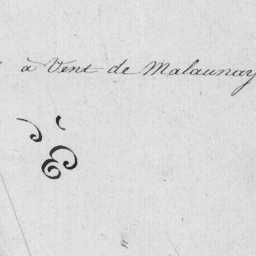 à Vent de Malaunay